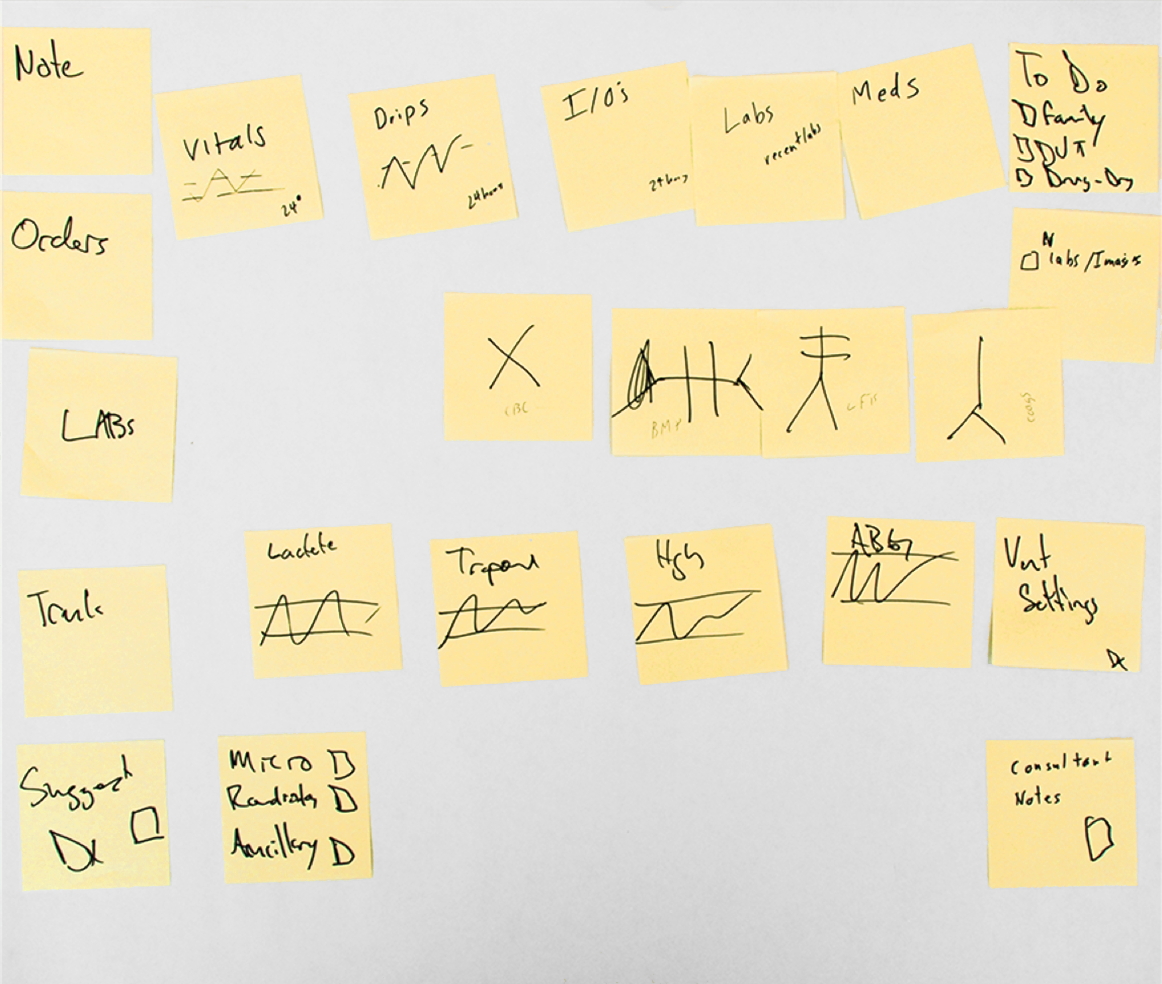 Note
Vitals
24°
Drips
24 hour
I/O's
24 hour
Labs
recent labs
Meds
To Do
Family
DVT
Drug-Drg
Orders
N
labs / Images
LABs
CBC
BMP
LFTs
coags
Lactate
Hgb
ABG
Vent
Settings
Dx
Suggest
Dx
Micro
Radiology
Ancillary
Consultant
Notes